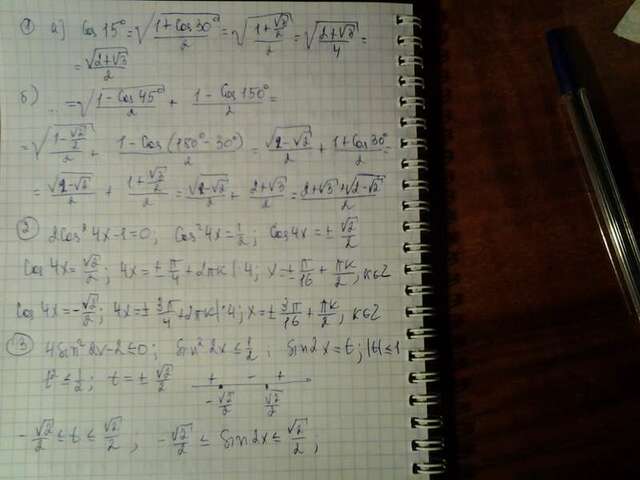 ① а) Cos 15° = √((1+Cos 30°)/2) = √((1+√3/2)/2) = √((2+√3)/4) =
= √(2+√3)/2
б) .. = √((1-Cos 45°)/2) + (1-Cos 150°)/2 =
= √((1-√2/2)/2) + (1-Cos(180°-30°))/2 = √(2-√2)/2 + (1+Cos 30°)/2 =
= √(2-√2)/2 + (1+√3/2)/2 = √(2-√2)/2 + (2+√3)/2 = (2+√3+√(2-√2))/2
② 2Cos² 4x-1=0; Cos² 4x=1/2; Cos 4x = ± √2/2
Cos 4x = √2/2; 4x = ± π/4 + 2πk |:4; x = ± π/16 + πk/2, k∈Z
Cos 4x = -√2/2; 4x = ± 3π/4 + 2πk |:4; x = ± 3π/16 + πk/2, k∈Z
③ 4Sin² 2x-2≤0; Sin² 2x ≤ 1/2; Sin 2x = t; |t|≤1
t² ≤ 1/2; t = ± √2/2 + - +
-√2/2 √2/2
-√2/2 ≤ t ≤ √2/2; -√2/2 ≤ Sin 2x ≤ √2/2;